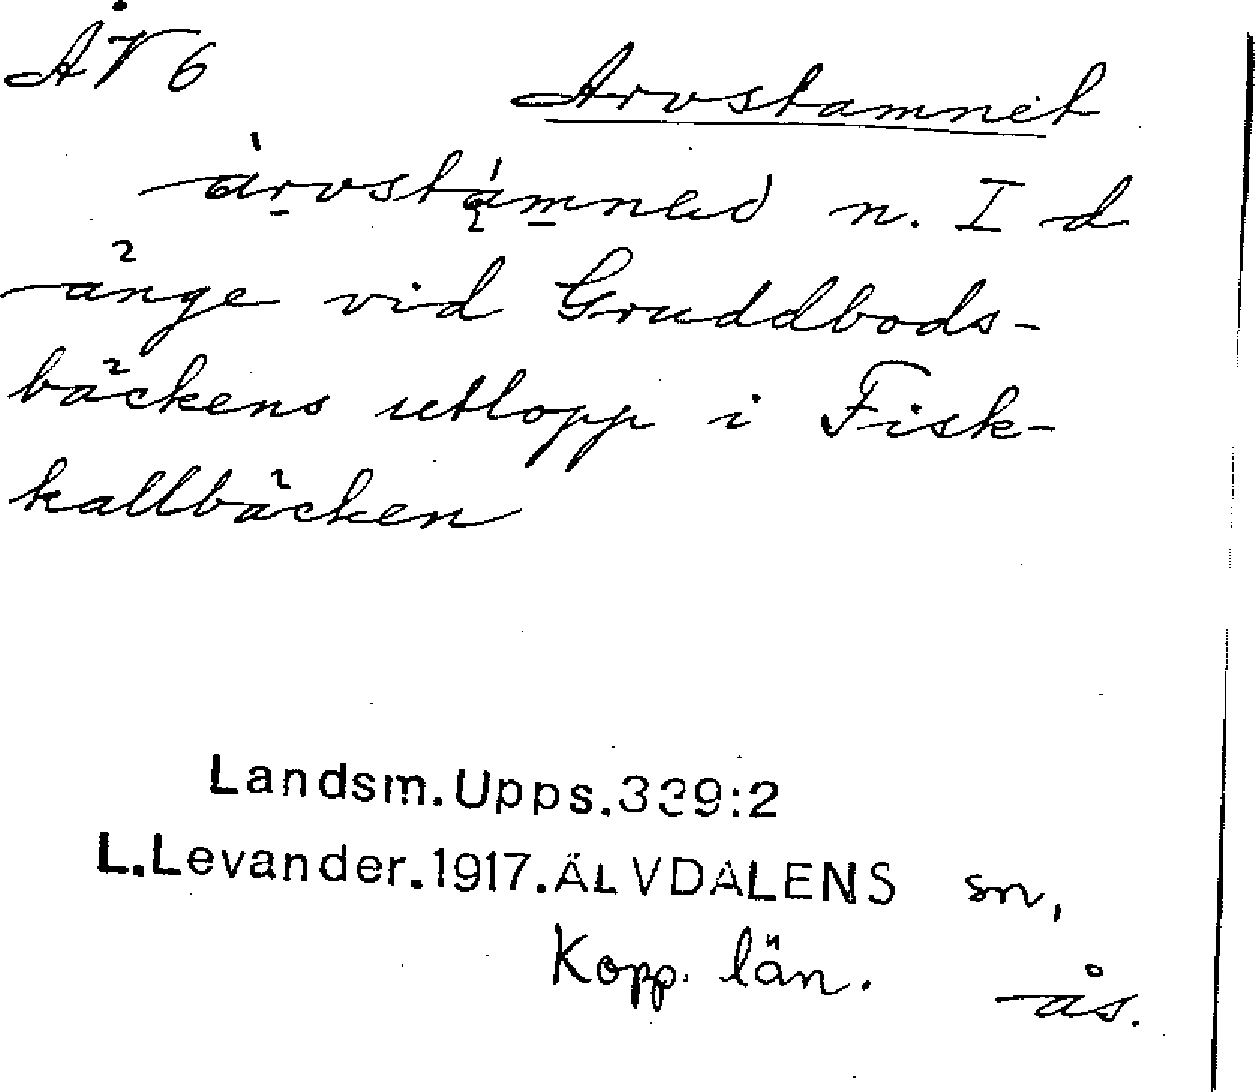 ÅV 6
Arvstamnet
àrvstąmned n. I d
änge vid Gruddbods-
bäckens utlopp i Fisk-
kallbäcken
Landsm.Upps.339:2
L.Levander.1917.ÄLVDALENS sn,
Kopp. län.
ås.